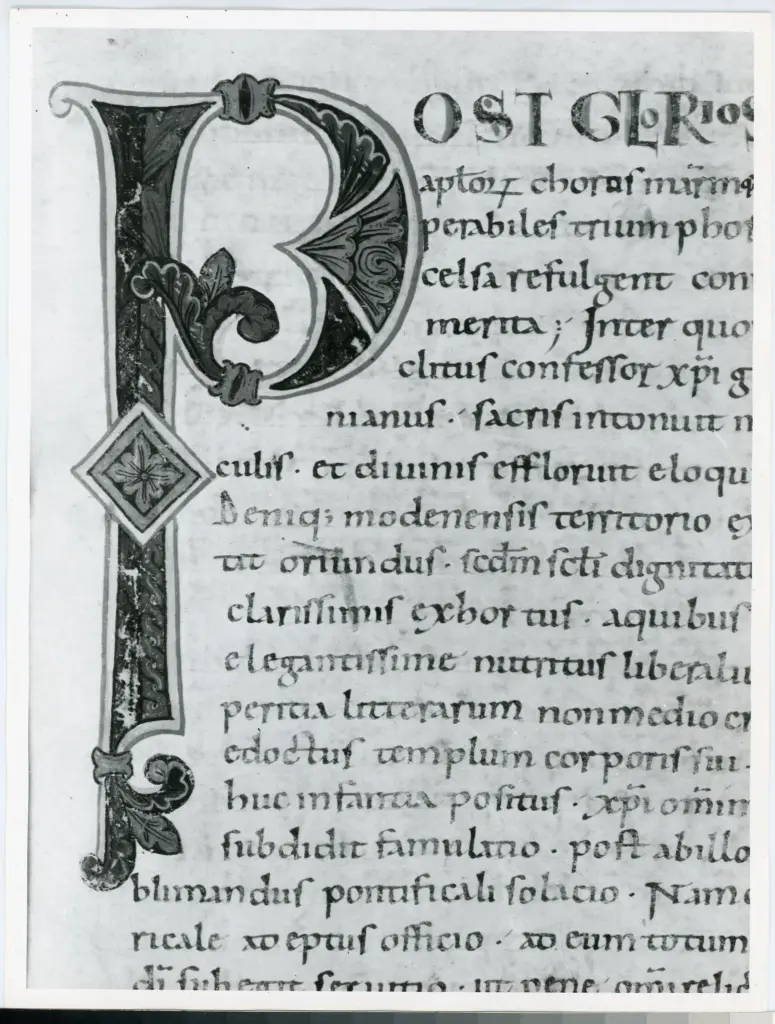 POST GLORIOS
aptoꝝ chorus mar̄ms
perabiles triumphos
celsa refulgent con
merita ; Inter quo
clitus confessor xp̄i g
nianus · sacris intonuit m
culis · et diuinis effloruit eloqu
Deniq; modenensis territorio ex
tit oriundus · scd̄m scl̄i dignitati
clarissimis exhortus · aquibus
elegantissime nutritus liberaliu
peritia litterarum nonmediocr
edoctus templum corporis sui ·
huc infantia positus · xp̄i om̄in
subdidit famulatio · post abillo
blimandus pontificali solacio · Nam
ricale adeptus officio · ad eum totum
di subegit seruitio · ut pene om̄i relig